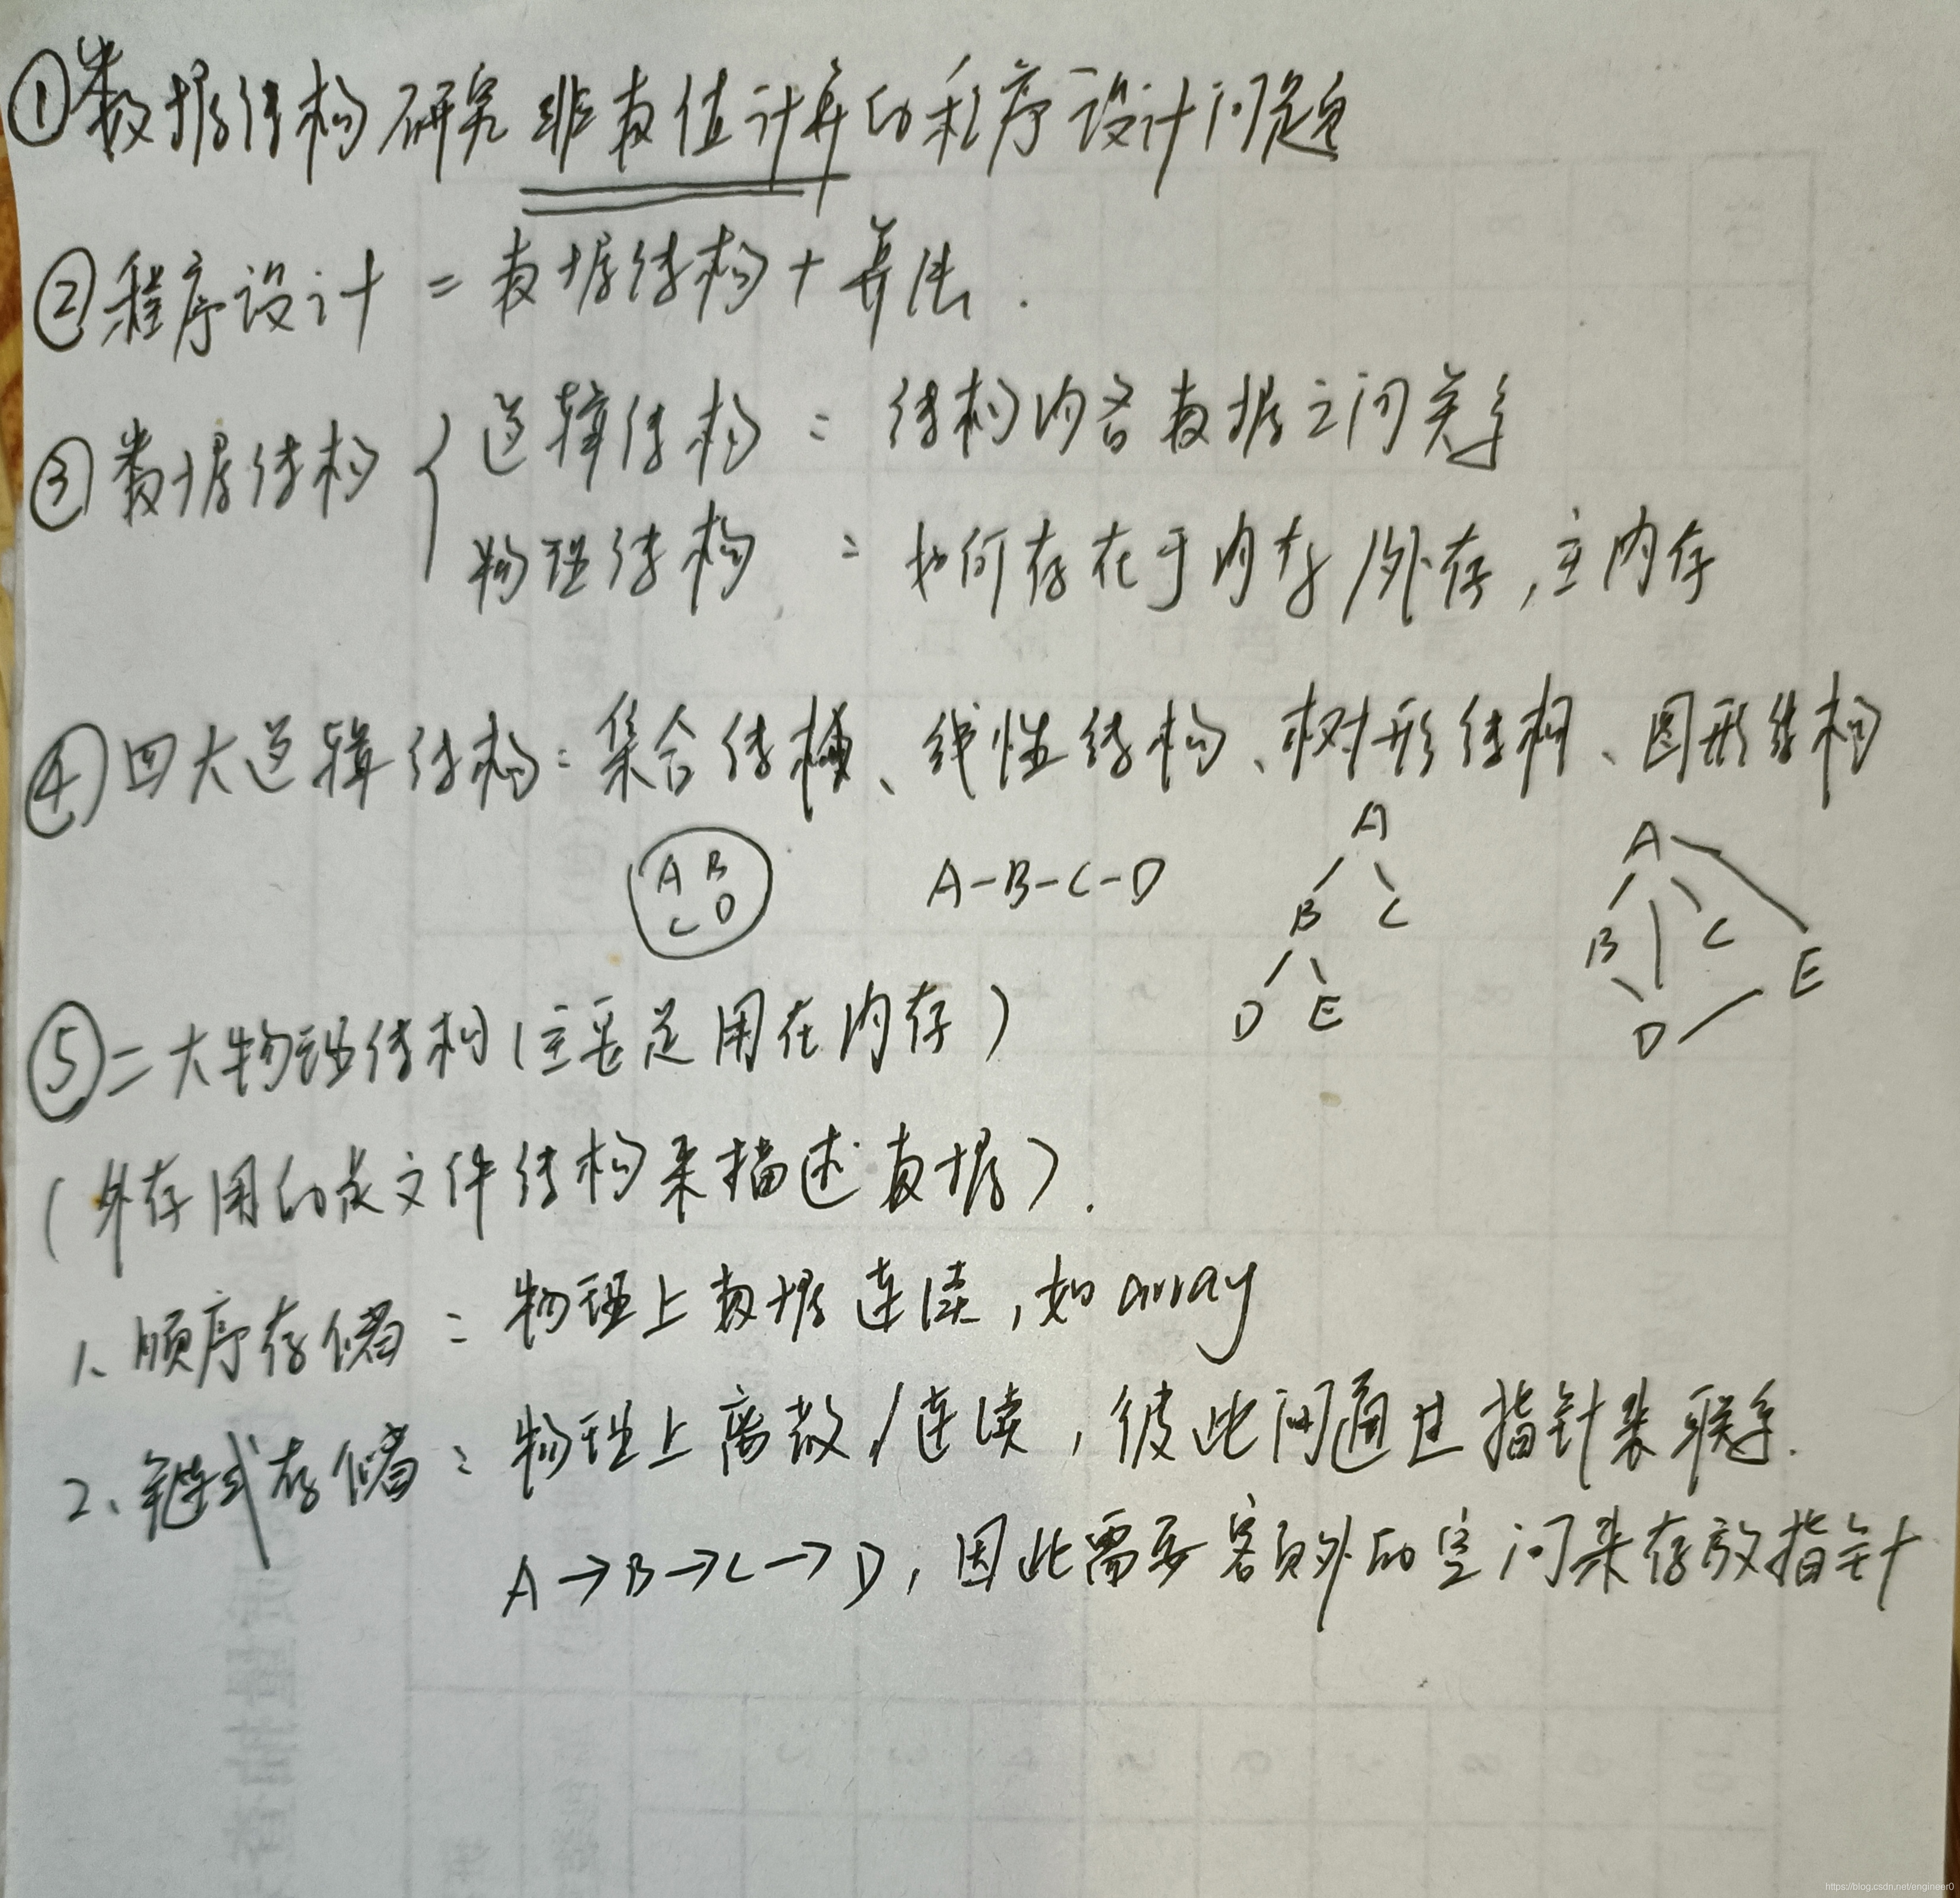 ①数据结构研究非数值计算的程序设计问题
②程序设计 = 数据结构 + 算法.
③数据结构 { 逻辑结构 : 结构内各数据之间关系
物理结构 : 如何存在于内存/外存,主内存
④四大逻辑结构:集合结构、线性结构、树形结构、图形结构
A B
C D
A-B-C-D
A
B C
D E
A
B C
E
D
⑤二大物理结构(主要是用在内存)
(外存用的是文件结构来描述数据).
1、顺序存储:物理上数据连续,如array
2、链式存储:物理上离散/连续,彼此间通过指针来联系.
A→B→C→D,因此需要额外的空间来存放指针
https://blog.csdn.net/engineer0